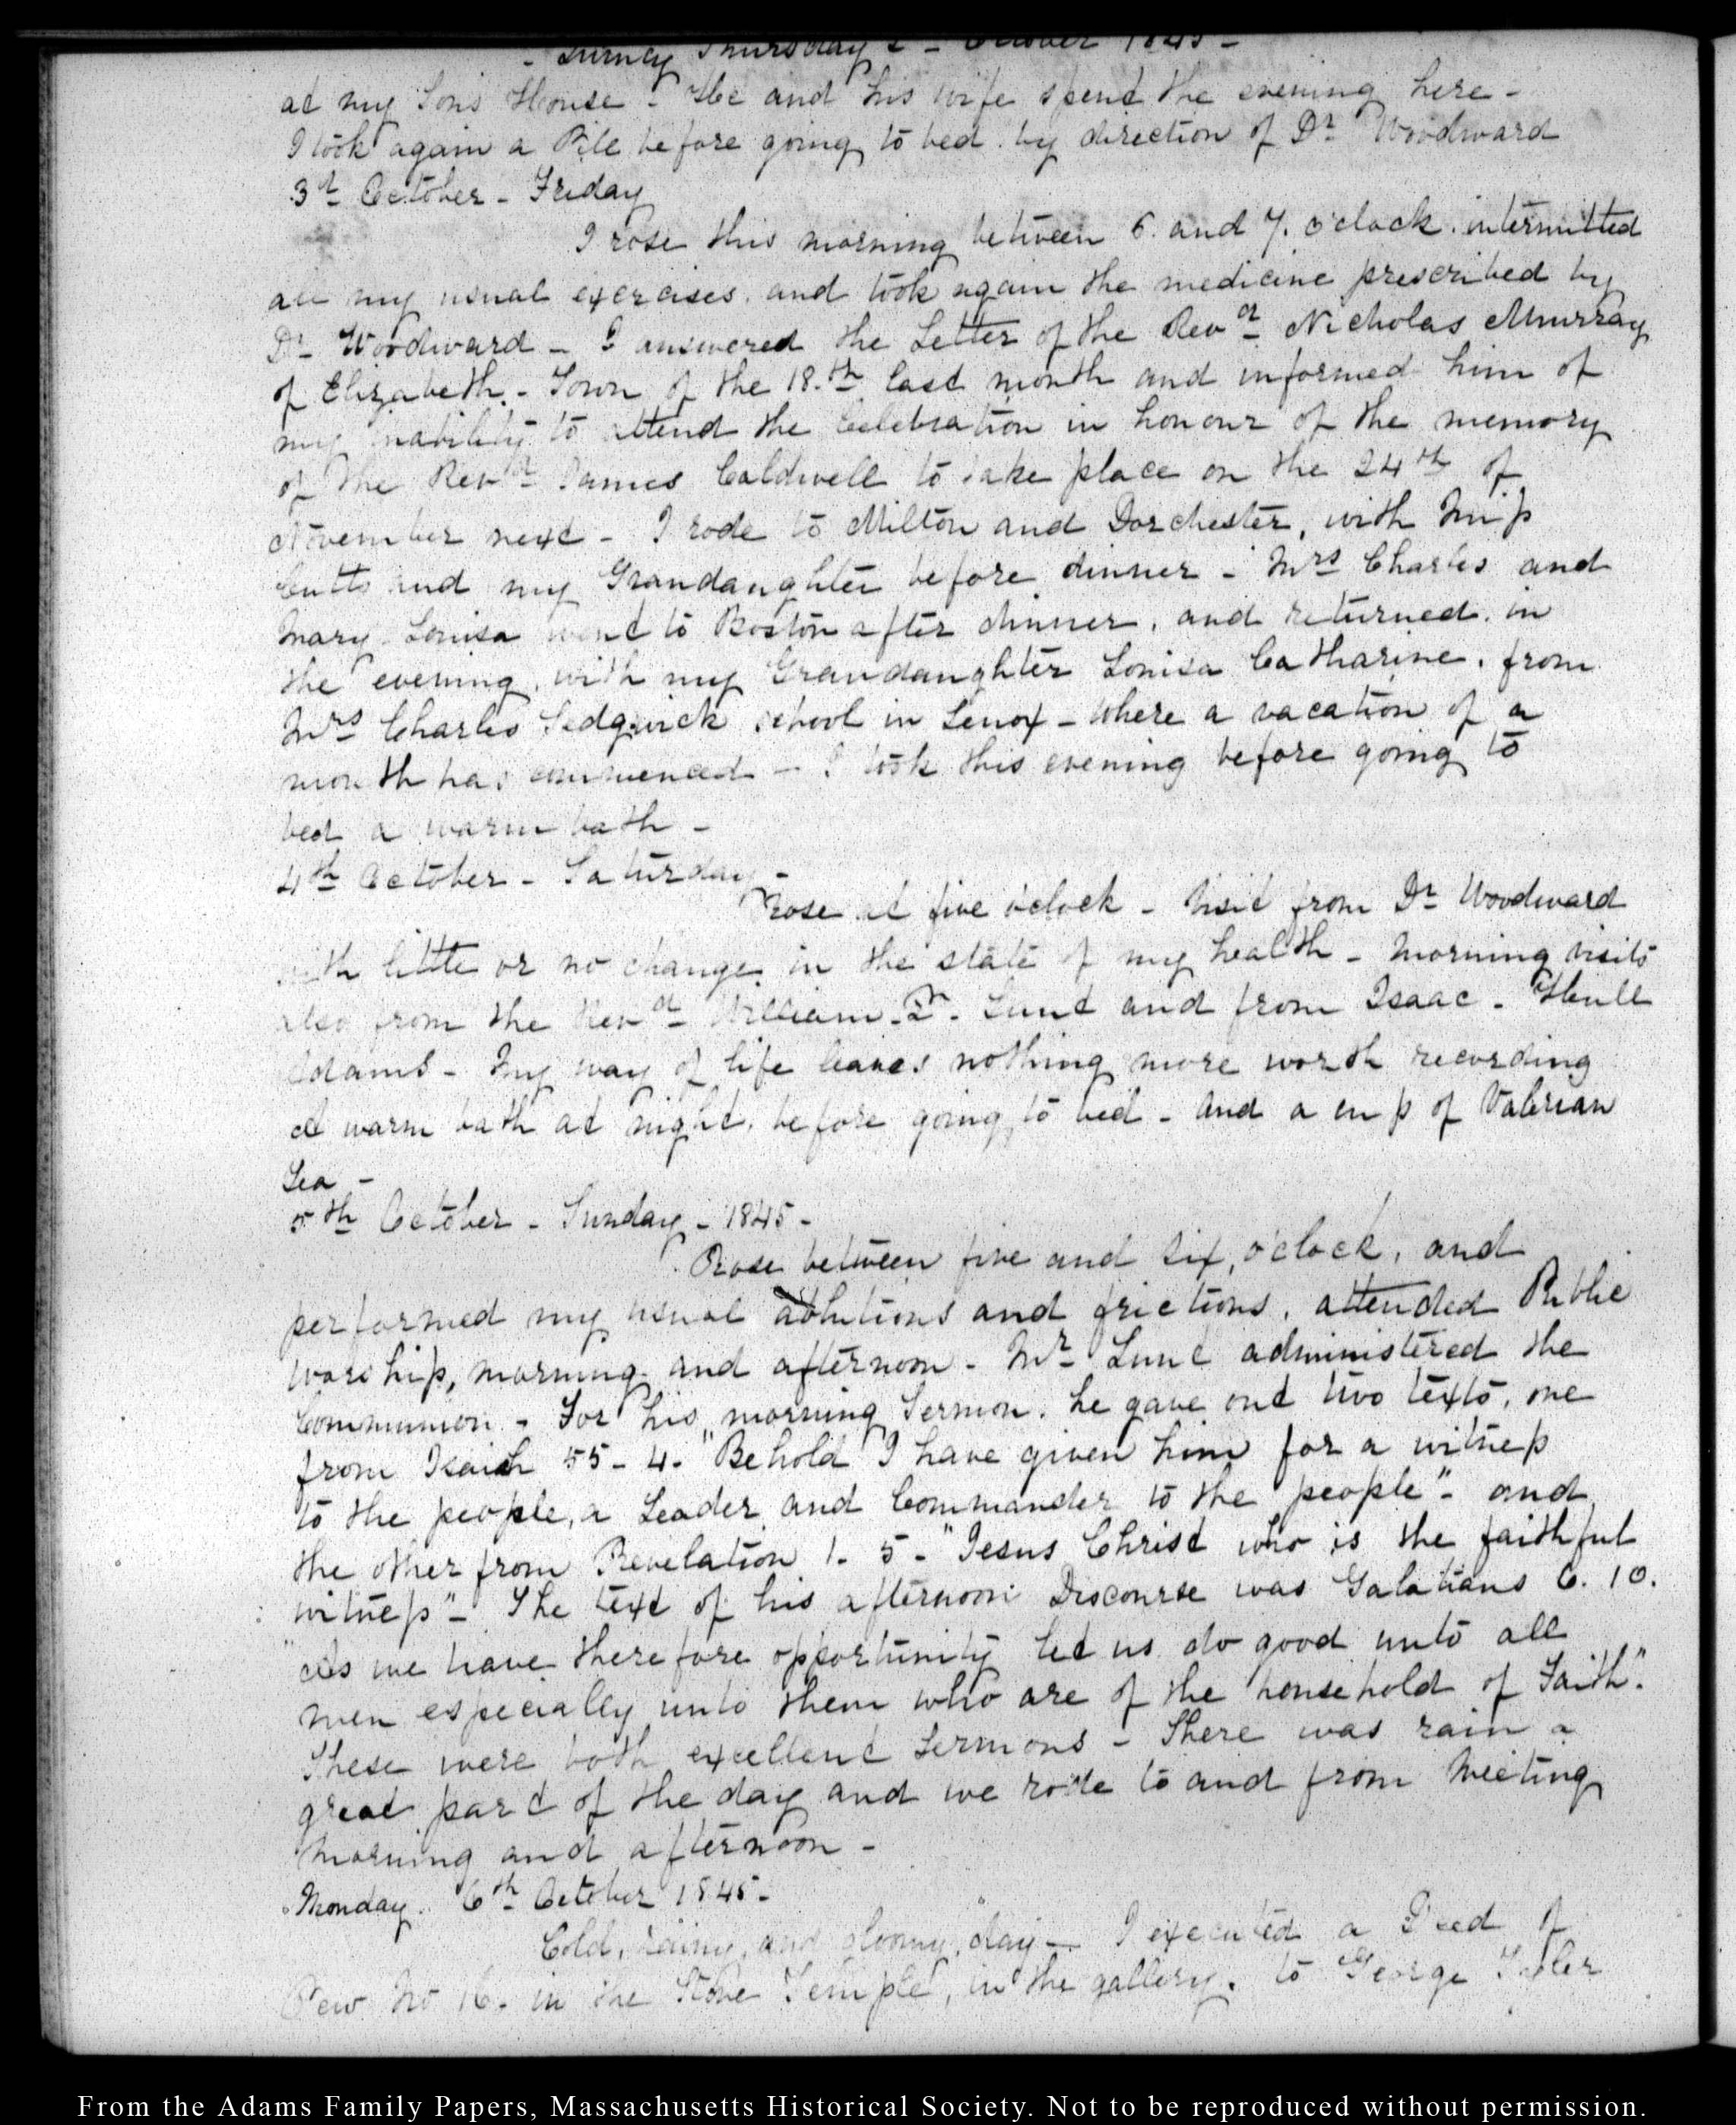 - Quincy Thursday 2 - October 1845 -
at my Sons House - He and his wife spent the evening here -
I took again a Pill before going to bed. by direction of Dr Woodward
3d October - Friday
I rose this morning between 6. and 7. o'clock. intermitted
all my usual exercises. and took again the medicine prescribed by
Dr Woodward - I answered the Letter of the Revd Nicholas Murray
of Elizabeth - Town of the 18.th last month and informed him of
my inability to attend the Celebration in honour of the memory
of the Revd James Caldwell to take place on the 24th of
November next - I rode to Milton and Dorchester, with Miss
Cutts and my Grandaughter before dinner - Mrs Charles and
Mary Louisa went to Boston after dinner, and returned in
the evening, with my Grandaughter Louisa Catharine, from
Mrs Charles Sedgwick school in Lenox - where a vacation of a
month has commenced - I took this evening before going to
bed a warm bath -
4th October - Saturday -
Rose at five o'clock - Visit from Dr Woodward
with little or no change in the state of my health - Morning visits
also from the Revd William P. Lunt and from Isaac - Hull
Adams - My way of life leaves nothing more worth recording
A warm bath at night, before going to bed - And a cup of Valerian
Tea -
5th October - Sunday - 1845 -
Rose between five and six, o'clock, and
performed my usual ablutions and frictions, attended Public
worship, morning and afternoon - Mr Lunt administered the
Communion - For his morning Sermon. he gave out two texts, one
from Isaiah 55 - 4. "Behold I have given him for a witness
to the people, a Leader and Commander to the people" - and
the other from Revelation 1. 5 - "Jesus Christ who is the faithful
witness" - The text of his afternoon Discourse was Galatians 6. 10.
"As we have therefore opportunity let us do good unto all
men especially unto them who are of the household of Faith".
These were both excellent Sermons - There was rain a
great part of the day and we rode to and from Meeting
Morning and afternoon -
Monday. 6th October 1845 -
Cold, rainy, and gloomy, day - I executed a Deed of
Pew No 16. in the Stone Temple, in the gallery. to George
From the Adams Family Papers, Massachusetts Historical Society. Not to be reproduced without permission.